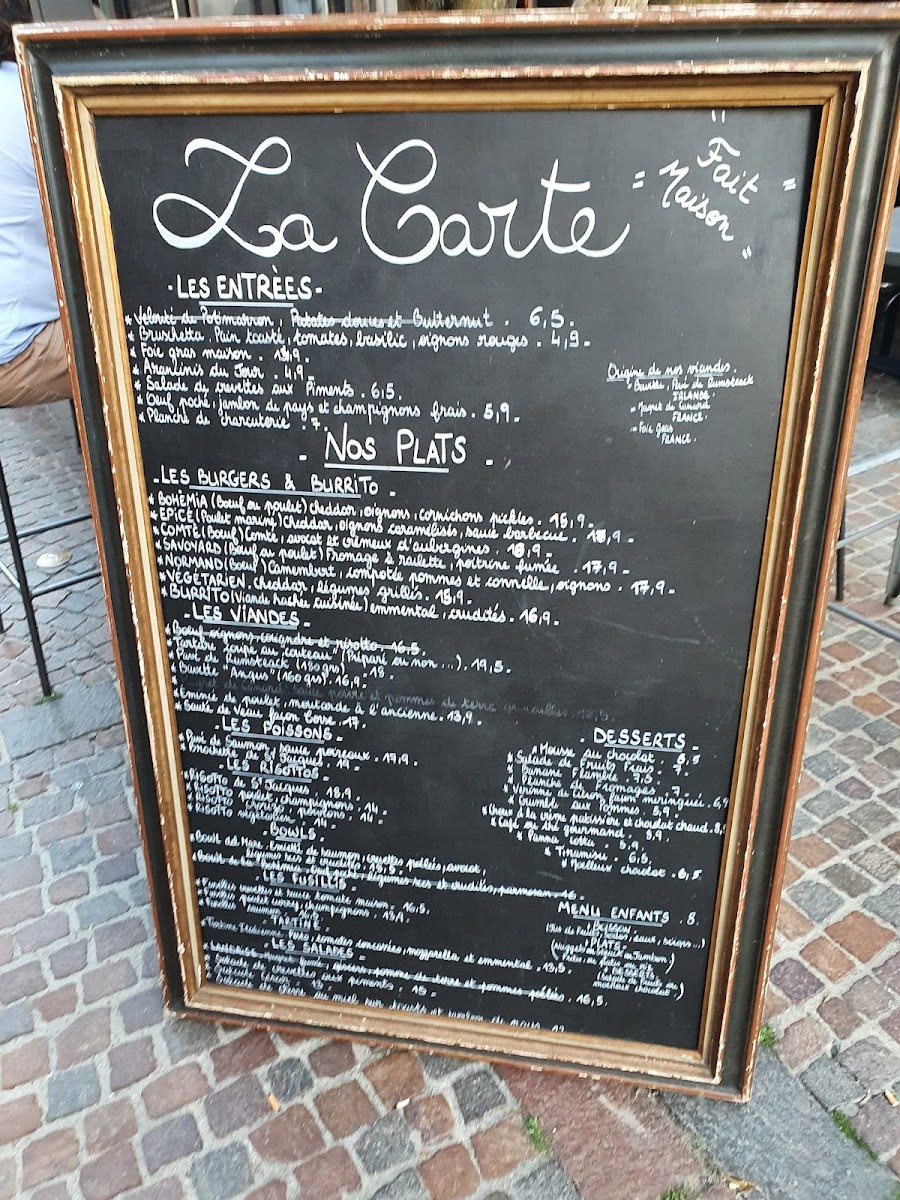 La Carte
" Fait
Maison "
- LES ENTRÈES -
* Velouté de Potimarron, Patates douces et Butternut . 6,5 .
* Bruschetta, Pain toasté, tomates, basilic, oignons rouges . 4,9 -
* Foie gras maison .
* Arancinis du Jour . 4,9 -
* Salade de crevettes aux Piments . 6,5 .
* Oeuf poché, jambon de pays et champignons frais . 5,9 -
* Planche de charcuterie . 7 .
Origine de nos viandes .
IRLANDE .
FRANCE .
- Foie gras
FRANCE .
- NOS PLATS -
- LES BURGERS & BURRITO -
* BOHÈMIA (Bœuf ou poulet) cheddar, oignons, cornichons pickles . 15,9 -
* EPICÉ (Poulet mariné) Cheddar, oignons caramélisés, sauce barbecue .
* COMTÉ (Bœuf) Comté, avocat et crémeux d'aubergines .
* SAVOYARD (Bœuf ou poulet) Fromage à raclette, poitrine fumée . 17,9 -
* NORMAND (Bœuf) Camembert, compotée pommes et cannelle, oignons . 17,9 -
* VÉGÉTARIEN. cheddar, légumes grillés .
* BURRITO (Viande hachée cuisinée) emmental, crudités . 16,9 -
- LES VIANDES -
* Bœuf oignons, coriandre et risotto . 16,5 .
* Tartare coupé au "couteau" (Préparé ou non ...) . 19,5 -
* Pavé de Rumsteack (180 grs) . 18 -
* Bavette "Angus" (160 grs) . 16,9 -
sauce poivre et pommes de terre grenailles . 18,5 .
* Emincé de poulet, moutarde à l'ancienne . 13,9 -
* Sauté de Veau façon Corse . 17 -
- LES POISSONS -
* Pavé de Saumon, sauce poireaux .
* Brochette de St Jacques . 19 -
- LES RISOTTOS -
* RISOTTO de St Jacques . 18,9
* RISOTTO poulet, champignons . 14 -
* RISOTTO chorizo, poivrons . 14 -
* RISOTTO végétarien . 14
- BOWLS -
* Bowl del Mare, Emietté de saumon, crevettes poêlées, avocat,
légumes secs et crudités .
légumes secs et crudités, parmesan . 16 -
- LES FUSILLIS -
* Fusillis crevettes et sauce tomate maison . 16,5 .
* Fusillis poulet curry, champignons . 13,9 .
- TARTINE -
* Tartine Italienne. Pesto, tomates concassées, mozzarella et emmental . 13,5 .
- LES SALADES -
gésiers, pomme de terre et pommes poêlées . 16,5 .
* Salade de crevettes aux piments . 15 -
* Salade César . 15 -
* Salade de chèvre au miel
- DESSERTS -
* Mousse au chocolat . 6,5
* Salade de Fruits Frais . 7 .
* Banane Flambée .
* Planche de Fromages . 7 -
* Verrine de Citron façon meringuée . 6,9
* Crumble aux Pommes . 5,9 -
* Choux à la crème patissière et chocolat chaud .
* Café ou thé gourmand .
* Panna Cotta . 5,9 -
* Tiramisu . 6,5 .
* Moelleux chocolat . 6,5 .
MENU ENFANTS . 8 .
- BOISSON -
- PLATS -
- DESSERTS -